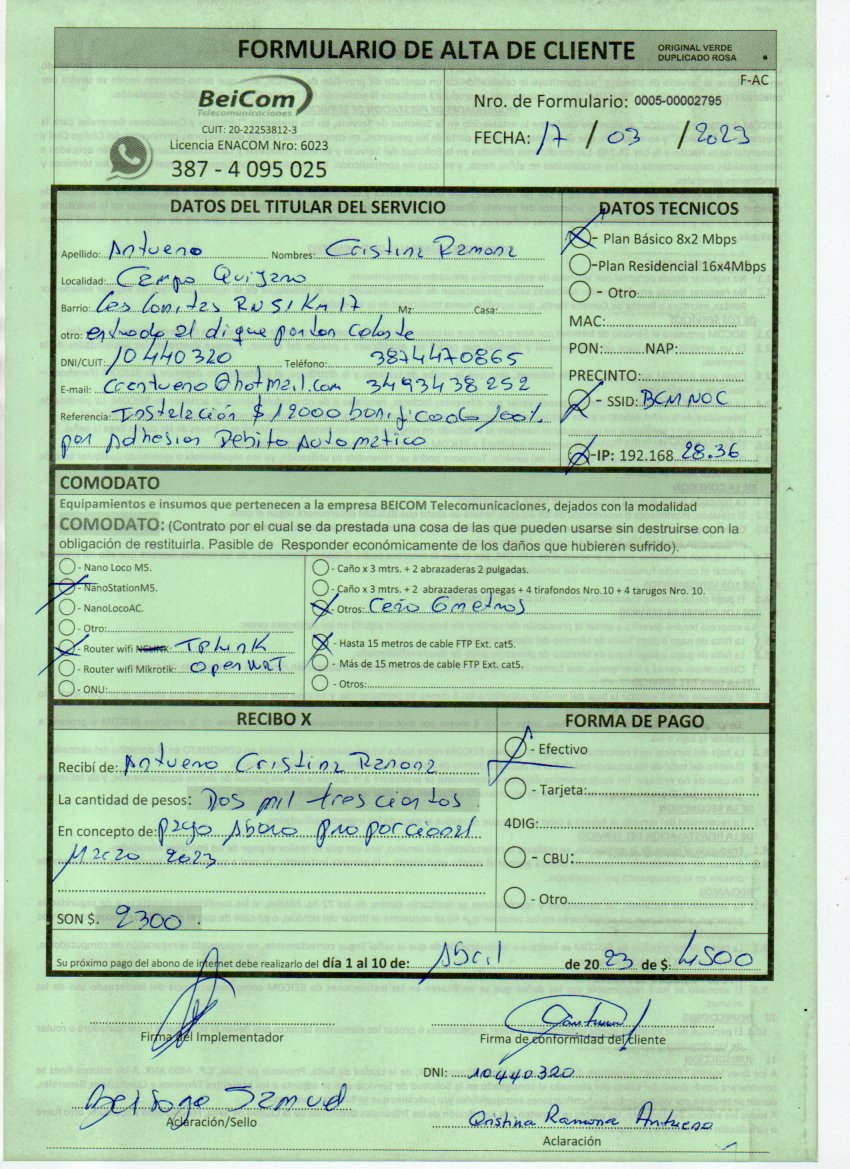 FORMULARIO DE ALTA DE CLIENTE
ORIGINAL VERDE
DUPLICADO ROSA
F-AC
BeiCom
Telecomunicaciones
CUIT: 20-22253812-3
Licencia ENACOM Nro: 6023
387 - 4 095 025
Nro. de Formulario: 0005-00002795
FECHA: 17 / 03 / 2023
DATOS DEL TITULAR DEL SERVICIO
Apellido: Antueno Nombres: Cristina Ramona
Localidad: Campo Quijano
Barrio: Las Lomitas RN 51 Km 17 Mz: Casa:
otro: entrada al dique porton celeste
DNI/CUIT: 10440320 Teléfono: 3874470865
E-mail: Crantueno@hotmail.com 3493438252
Referencia: Instalación $ 12000 bonificado 100%
por Adhesion Debito Automatico
DATOS TECNICOS
- Plan Básico 8x2 Mbps
-Plan Residencial 16x4Mbps
- Otro
MAC:
PON: NAP:
PRECINTO:
- SSID: BCM NOC
-IP: 192.168. 28.36
COMODATO
Equipamientos e insumos que pertenecen a la empresa BEICOM Telecomunicaciones, dejados con la modalidad
COMODATO: (Contrato por el cual se da prestada una cosa de las que pueden usarse sin destruirse con la
obligación de restituirla. Pasible de Responder económicamente de los daños que hubieren sufrido).
- Nano Loco M5.
- NanoStationM5.
- NanoLocoAC.
- Otro:
- Router wifi TPLINK
- Router wifi Mikrotik: OpenWRT
- ONU:
- Caño x 3 mtrs. + 2 abrazaderas 2 pulgadas.
- Caño x 3 mtrs. + 2 abrazaderas omegas + 4 tirafondos Nro.10 + 4 tarugos Nro. 10.
Otros: Caño 6 metros
- Hasta 15 metros de cable FTP Ext. cat5.
- Más de 15 metros de cable FTP Ext. cat5.
- Otros:
RECIBO X
Recibí de: Antueno Cristina Ramona
La cantidad de pesos: Dos mil trescientos
En concepto de: pago Abono proporcional
Marzo 2023
SON $. 2300
FORMA DE PAGO
- Efectivo
- Tarjeta:
4DIG:
- CBU:
- Otro
Su próximo pago del abono de internet debe realizarlo del día 1 al 10 de: Abril de 2023 de $: 4500
Firma del Implementador
Firma de conformidad del cliente
DNI: 10.440.320
Samuel
Aclaración/Sello
Cristina Ramona Antueno
Aclaración